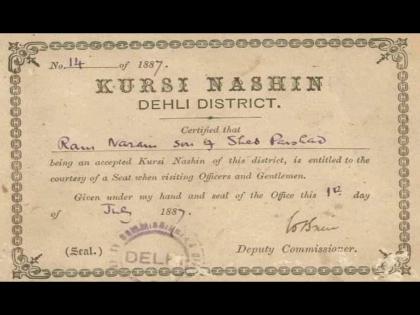 No. 14 of 1887.
KURSI NASHIN
DEHLI DISTRICT.
Certified that
Ram Narain Son of Sheo Parshad
being an accepted Kursi Nashin of this district, is entitled to the
courtesy of a Seat when visiting Officers and Gentlemen.
Given under my hand and seal of the Office this 1st day
of July 1887.
(Seal.)
DELHI
Deputy Commissioner.